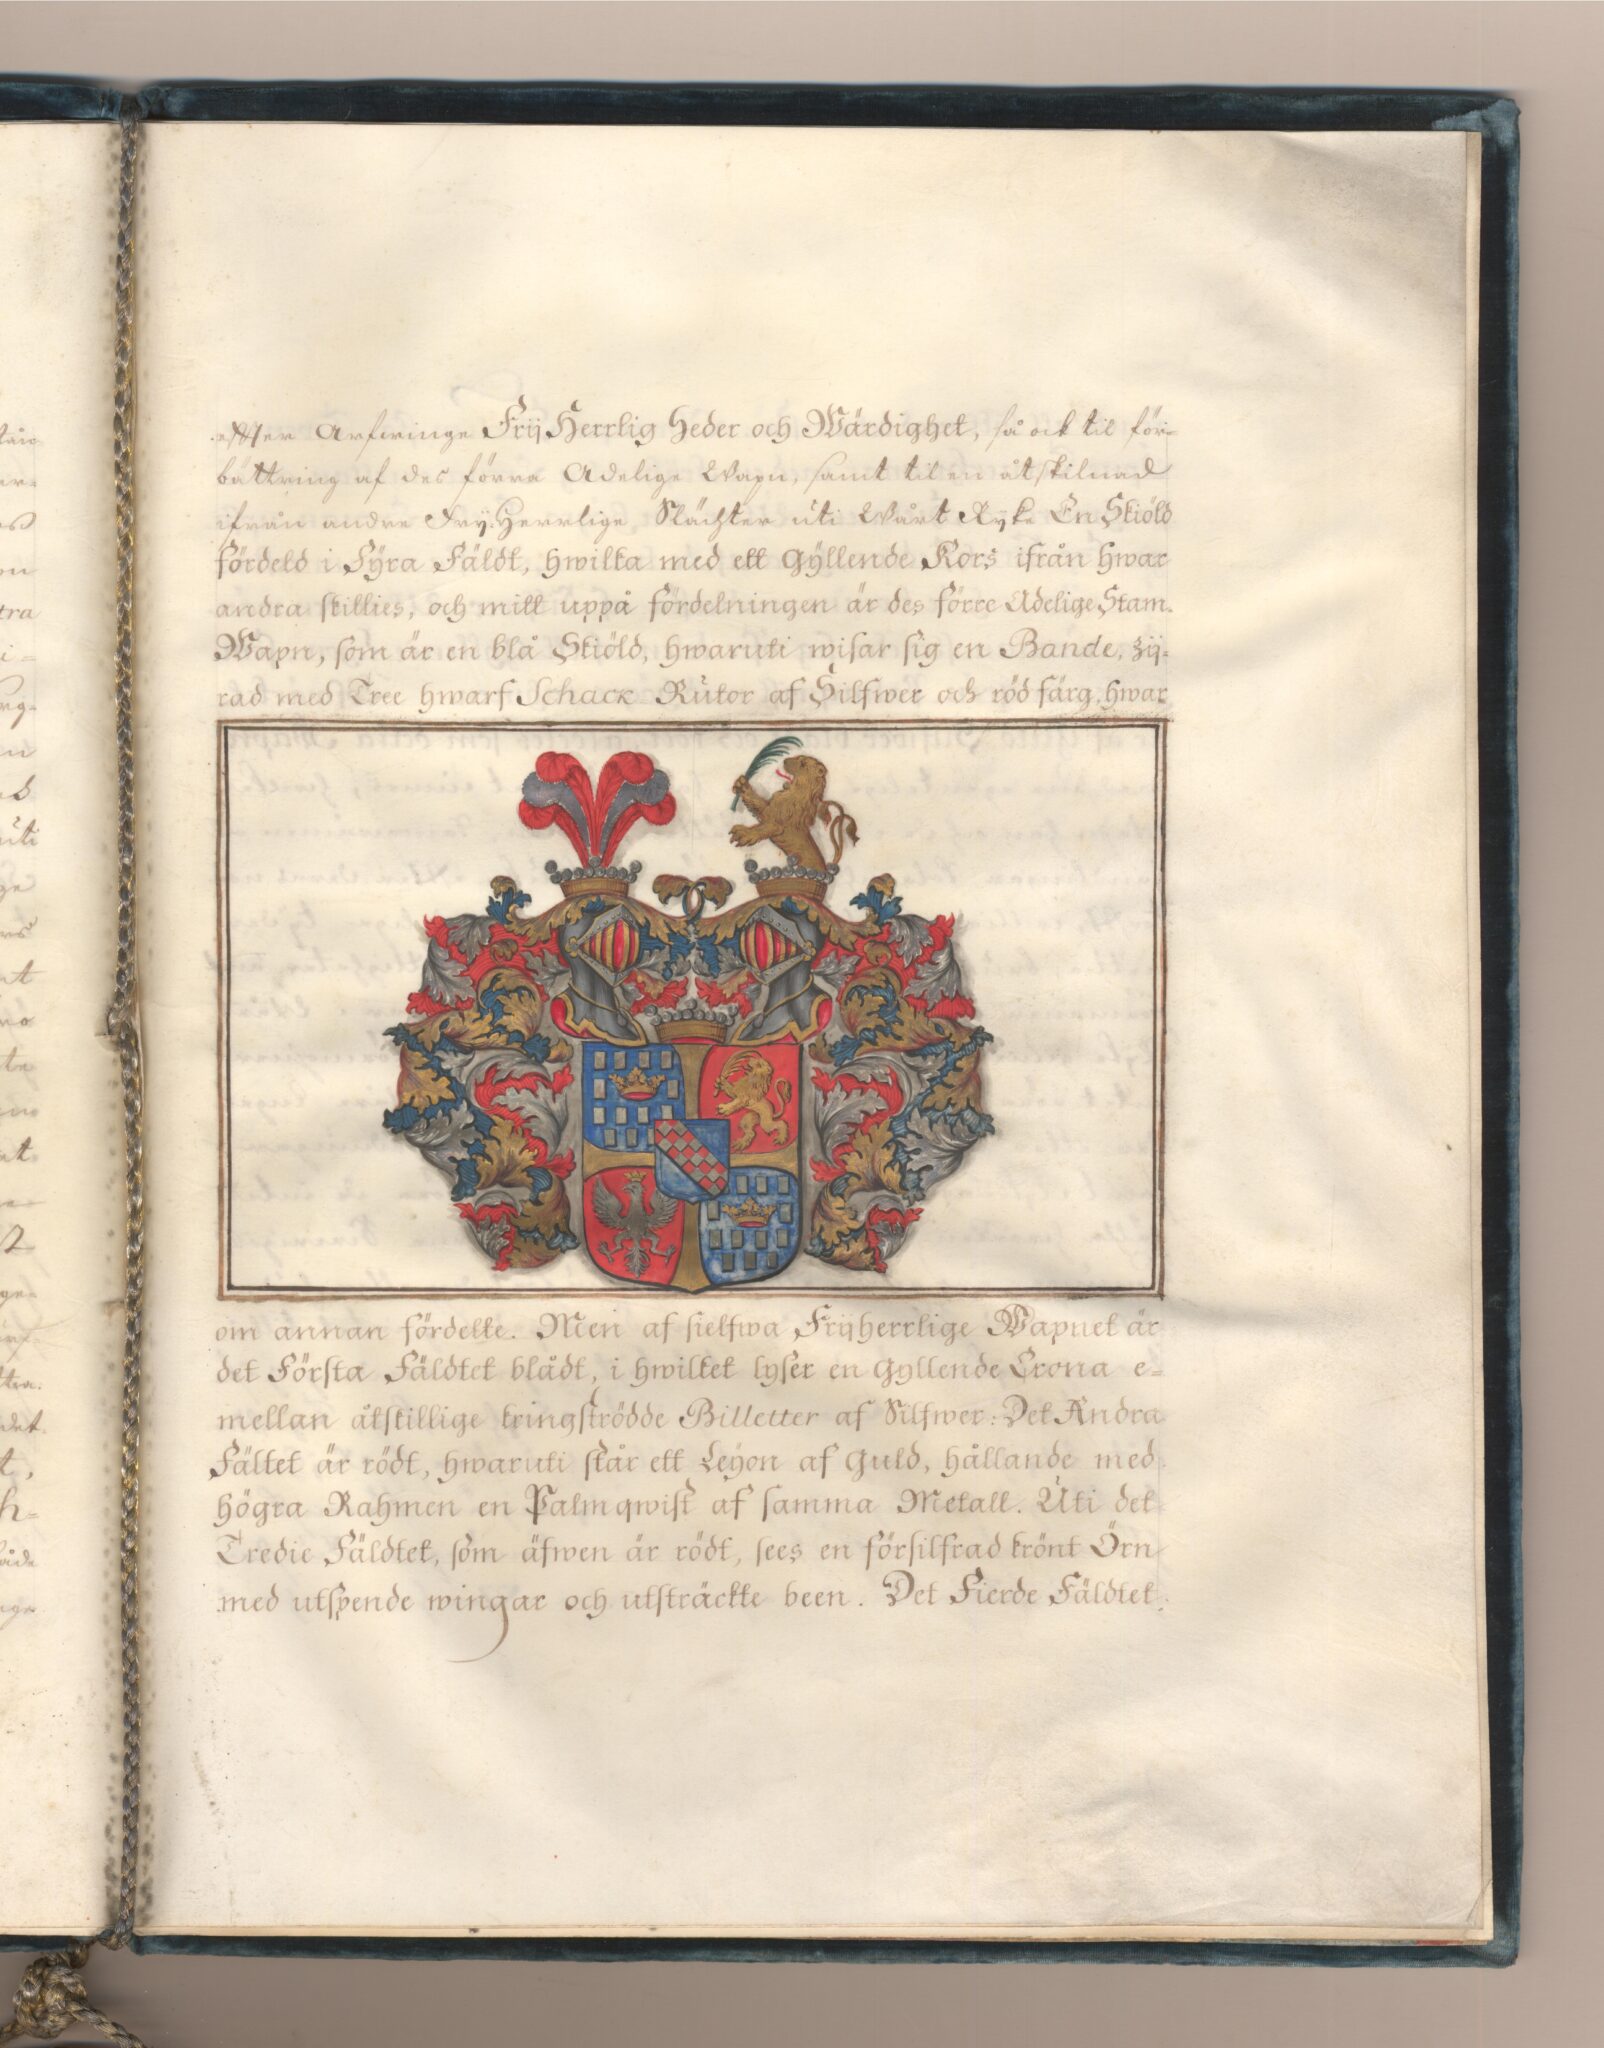 effter Arfwinge Frij Herrlig Heder och Wärdighet, så ock til för-
bättring af des förra Adelige Wapn, samt til en åtskilnad
ifrån andre Frij-Herrlige Slächter uti Wårt Ryke En Skiöld
fördeld i Fÿra Fäldt, hwilka med ett Gÿllende Kors ifrån hwar
andra skillies, och mitt uppå fördelningen är des förre Adelige Stam-
Wapn, som är en blå Skiöld, hwaruti wisar sig en Bande, zij-
rad med Tree hwarf Schack Rutor af Silfwer och röd färg, hwar
om annan fördelte. Men af sielfwa Frijherrlige Wapnet är
det Första Fäldtet blådt, i hwilket lyser en Gyllende Crona e-
mellan åtskillige kringströdde Billetter af Silfwer: Det Andra
Fältet är rödt, hwaruti står ett Leÿon af Guld, hållande med
högra Rahmen en Palmqwist af samma Metall. Uti det
Tredie Fäldtet, som äfwen är rödt, sees en försilfrad krönt Örn
med utspende wingar och utsträckte been. Det Fierde Fäldtet